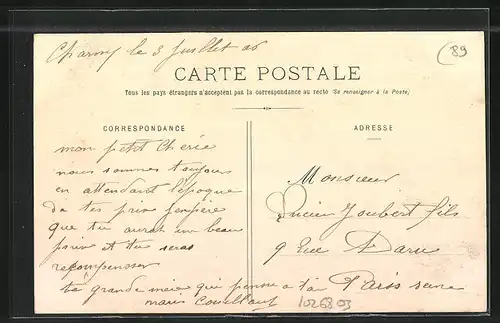 Charny le 3 Juillet 06
(89
CARTE POSTALE
Tous les pays étrangers n'acceptent pas la correspondance au recto (Se renseigner à la Poste)
CORRESPONDANCE
mon petit Chérie
nous sommes toujours
en attendant l'époque
de tes prix j'espère
que tu auras un beau
prix et tu seras
recompenser
ta grande mère qui pense a toi
ADRESSE
Monsieur
Lucien Joubert fils
9 Rue Daru
Paris seine
1026803